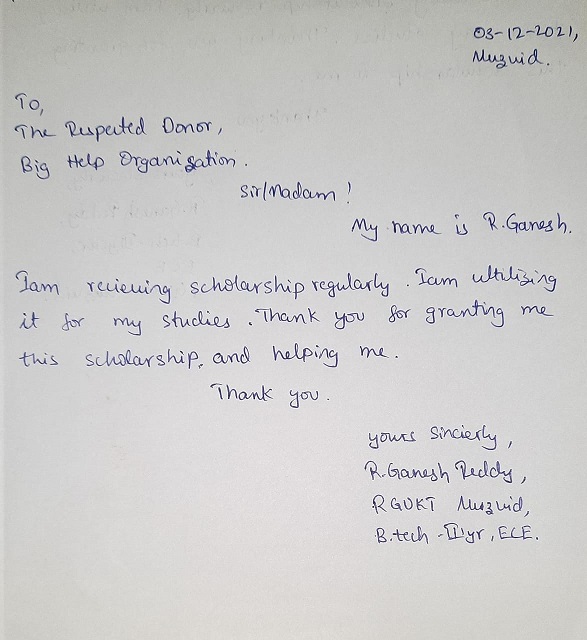 03-12-2021,
Nuzvid.
To,
The Respected Donor,
Big Help Organisation.
Sir/Madam!
My name is R.Ganesh.
Iam recieving scholarship regularly. Iam ultilizing
it for my studies. Thank you for granting me
this scholarship, and helping me.
Thank you.
yours Sincierly,
R.Ganesh Reddy,
RGUKT Nuzvid,
B.tech - II yr, ECE.